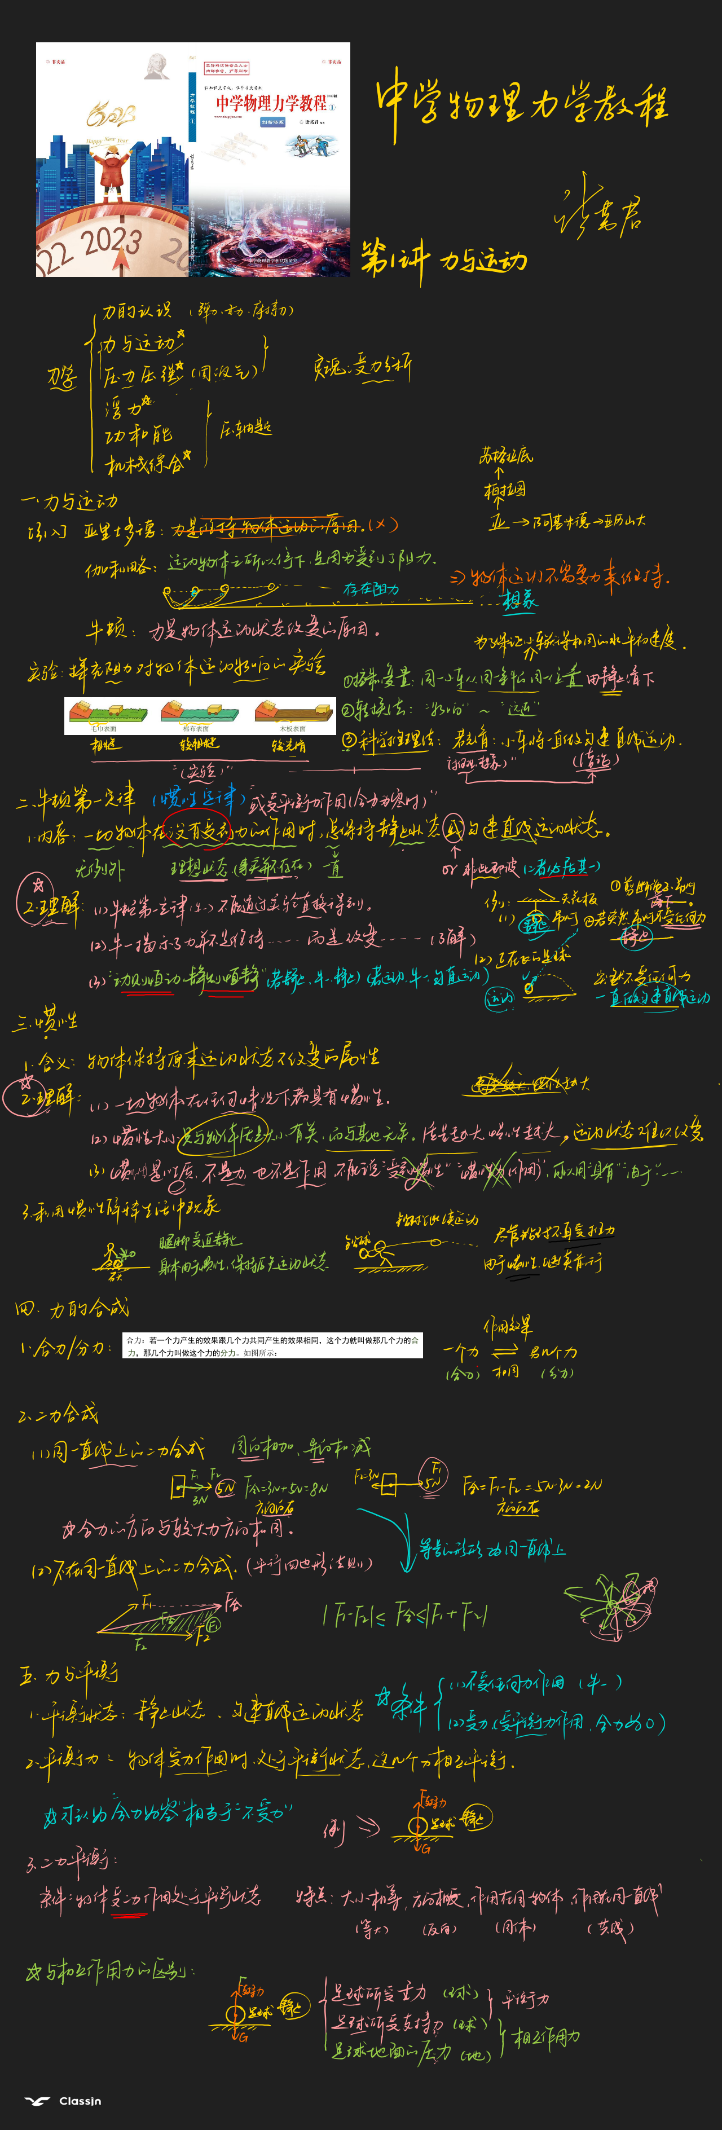 中学物理力学教程
中学物理力学教程
2023
022 2023
第1讲 力与运动
力学
力的认识 (弹力·重力·摩擦力)
力与运动☆
压力压强☆ (固液气)
浮力☆
功和能
机械综合☆
实现:受力分析
压轴题
苏格拉底
↑
柏拉图
↑
亚 → 阿基米德 → 亚历山大
一.力与运动
亚里士多德: 力是维持物体运动的原因。(×)
伽利略: 运动物体之所以停下,是因为受到了阻力.
⇒ 物体运动不需要力来维持.
存在阻力
想象
牛顿: 力是物体运动状态改变的原因。
实验: 探究阻力对物体运动影响的实验
为了保证小车获得相同的水平初速度.
①控制变量: 同一小车从同一斜面同一位置由静止滑下
②转换法: "影响" ~ "远近"
③科学推理法: 若光滑:小车将一直做匀速直线运动.
毛巾表面 棉布表面 木板表面
粗糙 较粗糙 较光滑
"(实验)"
(推论)
二.牛顿第一定律 (惯性定律) "或受平衡力作用(合力为零时)"
1.内容: 一切物体在没有受到力的作用时,总保持静止状态或匀速直线运动状态。
无例外 理想状态 (事实并不存在) 一直 or 非此即彼 (二者必居其一)
2.理解: (1)牛顿第一定律(牛一) 不能通过实验直接得到.
(2)牛一揭示了力并不是维持……而是改变…… (了解)
(3)"动则恒动,静则恒静" (若静止,牛一,静止) (若运动,牛一,匀直运动)
例: 天花板
(1) 静止 吊灯
静止
(2)正在飞的足球
运动
突然不受任何力
一直做匀速直线运动
三.惯性
1.含义: 物体保持原来运动状态不改变的属性
2.理解: (1)一切物体在任何情况下都具有惯性.
(2)惯性大小只与物体质量大小有关,而与其他无关. 质量越大,惯性越大,运动状态难以改变
(3)惯性是性质,不是力,也不是作用,不能说"受到惯性""惯性作用",可以用"具有""由于"……
3.利用惯性解释生活中现象
腿脚受迫静止
身体由于惯性,保持原先运动状态
石头
铅球
铅球继续运动
由于惯性,继续前行
四.力的合成
1.合力/分力:
合力:若一个力产生的效果跟几个力共同产生的效果相同,这个力就叫做那几个力的合
力,那几个力叫做这个力的分力。如图所示:
作用效果
一个力 ⇌ 另几个力
(合力) 相同 (分力)
2.二力合成
(1)同一直线上的二力合成 同向相加,异向相减
F₁ F₂
3N 5N F合=3N+5N=8N
方向向右
F₂=3N F₁ 5N F合=F₁-F₂=5N-3N=2N
方向向右
☆合力的方向与较大力方向相同。
(2)不在同一直线上的二力合成. (平行四边形法则)
F₁ F合
F₂
|F₁-F₂|≤F合≤|F₁+F₂|
五.力与平衡
1.平衡状态: 静止状态、匀速直线运动状态
☆条件 (1)不受任何力作用 (牛一)
(2)受力 (受平衡力作用,合力为0)
2.平衡力: 物体受力作用时,处于平衡状态,这几个力相互平衡.
☆可认为"合力为零"相当于"不受力"
例 ⇒ 足球 静止
G
3.二力平衡:
条件:物体受二力作用处于平衡状态 特点: 大小相等,方向相反,作用在同一物体,作用在同一直线
(等大) (反向) (同体) (共线)
☆与相互作用力的区别:
足球 静止
G
足球所受重力 (球)
足球所受支持力 (球)
平衡力
足球地面的压力 (地)
相互作用力
ClassIn